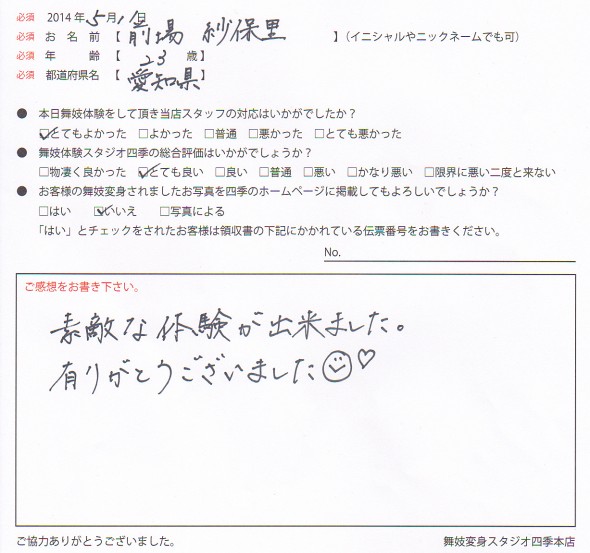 必須 2014年5月11日
必須 お名前【前場 紗保里】(イニシャルやニックネームでも可)
必須 年齢【23歳】
必須 都道府県名【愛知県】
● 本日舞妓体験をして頂き当店スタッフの対応はいかがでしたか?
☑とてもよかった □よかった □普通 □悪かった □とても悪かった
● 舞妓体験スタジオ四季の総合評価はいかがでしょうか?
□物凄く良かった ☑とても良い □良い □普通 □悪い □かなり悪い □限界に悪い二度と来ない
● お客様の舞妓変身されましたお写真を四季のホームページに掲載してもよろしいでしょうか?
□はい ☑いいえ □写真による
「はい」とチェックをされたお客様は領収書の下記にかかれている伝票番号をお書きください。
No.
ご感想をお書き下さい。
素敵な体験が出来ました。
有りがとうございました☺♡
ご協力ありがとうございました。 舞妓変身スタジオ四季本店